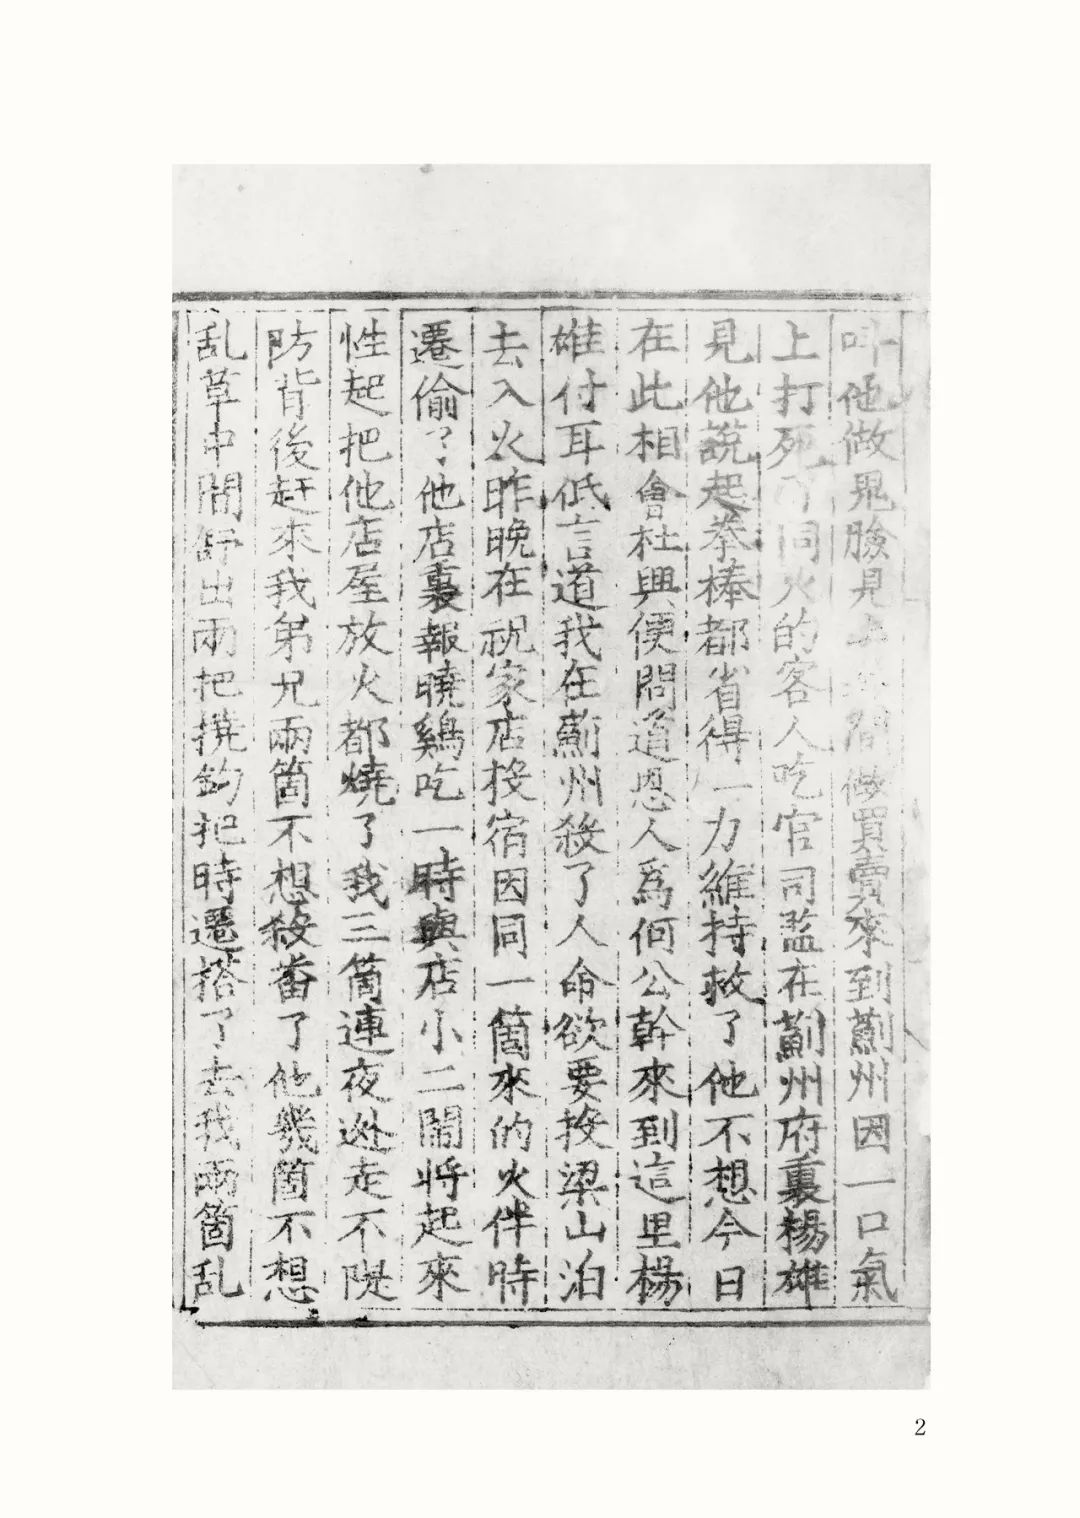 叫他做鬼臉見上年間做買賣來到薊州因一口氣
上打死了同火的客人吃官司監在薊州府裏楊雄
見他說起拳棒都省得一力維持救了他不想今日
在此相會杜興便問道恩人爲何公幹來到這里楊
雄付耳低言道我在薊州殺了人命欲要投梁山泊
去入火昨晚在祝家店投宿因同一箇來的火伴時
遷偷了他店裏報曉鷄吃一時與店小二鬧將起來
性起把他店屋放火都燒了我三箇連夜逃走不隄
防背後赶來我弟兄兩箇不想殺番了他幾箇不想
乱草中間舒出兩把撓鈎把時遷搭了去我兩箇乱
2